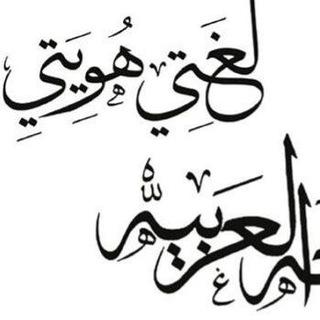 لغَتِي هُوِيَتِي
العربيه